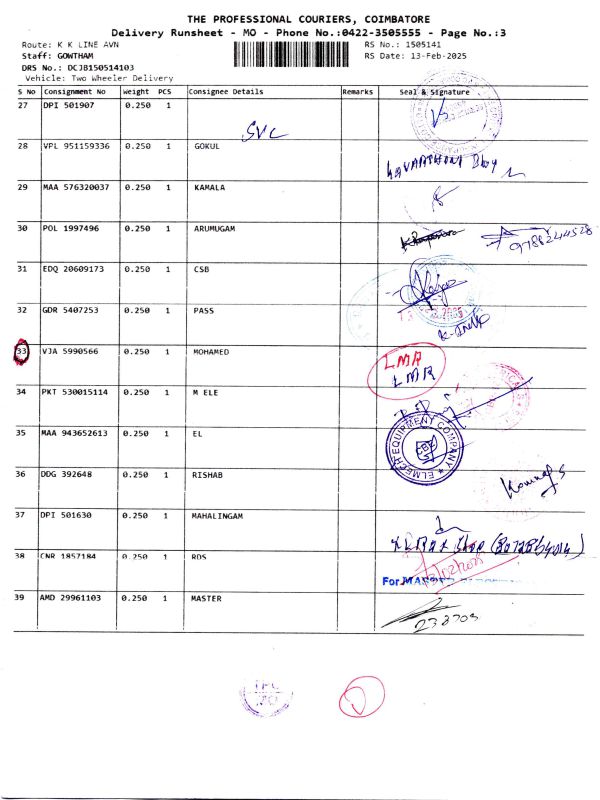 THE PROFESSIONAL COURIERS, COIMBATORE
Delivery Runsheet - MO - Phone No.:0422-3505555 - Page No.:3
Route: K K LINE AVN
RS No.: 1505141
Staff: GOWTHAM
RS Date: 13-Feb-2025
DRS No.: DCJB150514103
Vehicle: Two Wheeler Delivery
S No Consignment No Weight PCS Consignee Details Remarks Seal & Signature
27 DPI 501907 0.250 1
SVC
28 VPL 951159336 0.250 1 GOKUL
29 MAA 576320037 0.250 1 KAMALA
30 POL 1997496 0.250 1 ARUMUGAM
9788244528
31 EDQ 20609173 0.250 1 CSB
32 GDR 5407253 0.250 1 PASS
33 VJA 5990566 0.250 1 MOHAMED
LMR
LMR
34 PKT 530015114 0.250 1 M ELE
35 MAA 943652613 0.250 1 EL
ELMECH EQUIPMENT COMPANY
36 DDG 392648 0.250 1 RISHAB
37 DPI 501630 0.250 1 MAHALINGAM
38 CNR 1857184 0.250 1 RDS
39 AMD 29961103 0.250 1 MASTER
TPC
MO